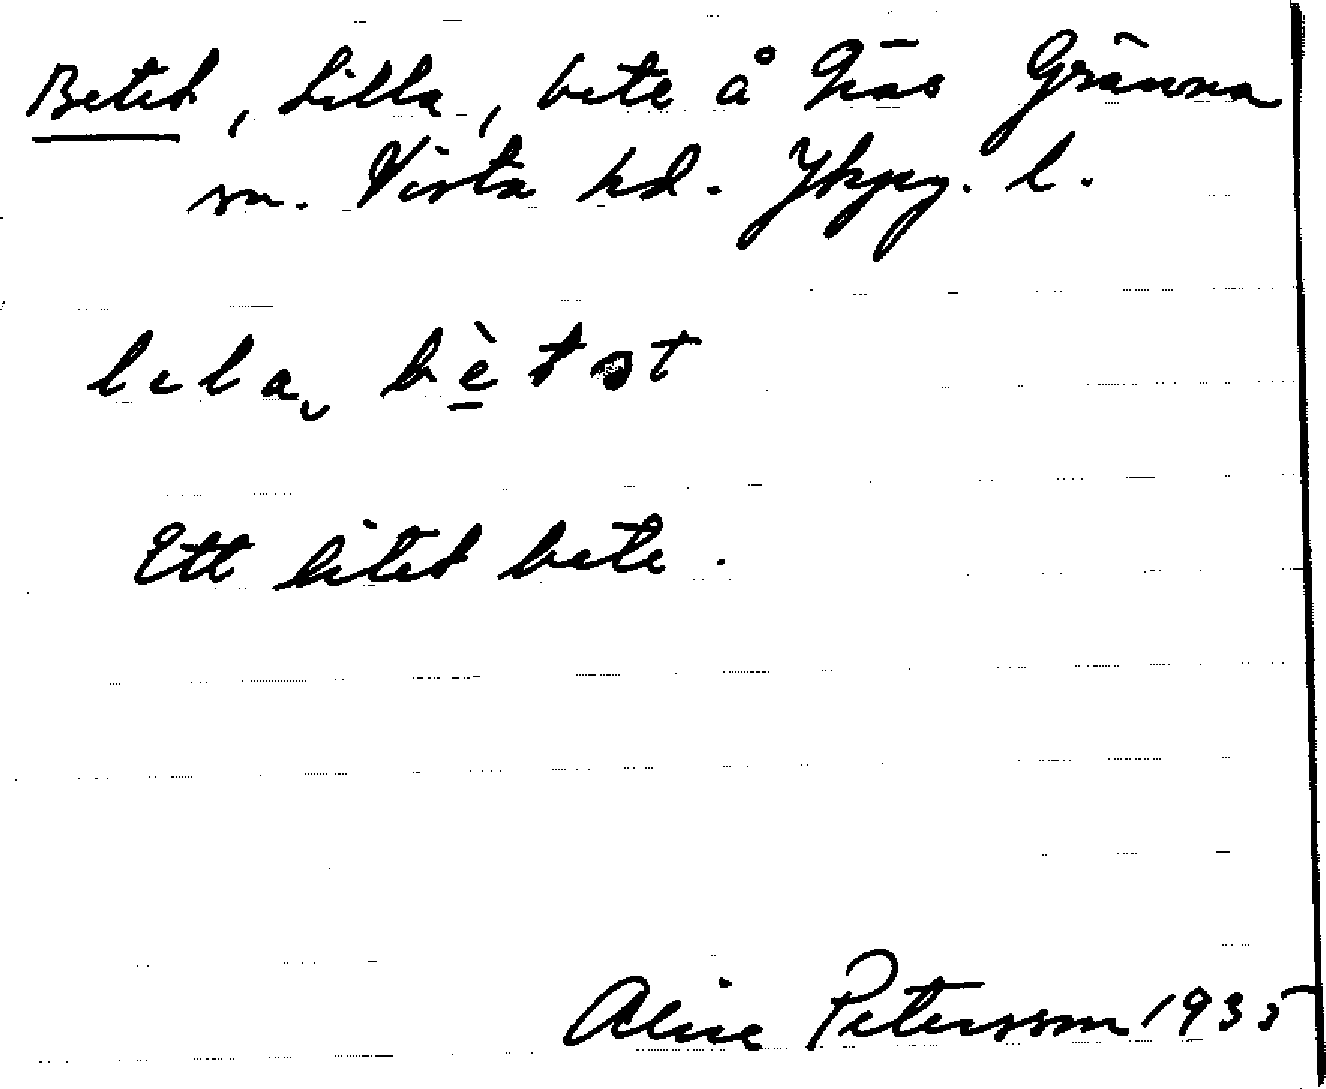 Betet, Lilla, bete å Näs Gränna
sn. Vista hd. Jkpg. l.
lela bètət
Ett litet bete.
Alice Petersson 1935